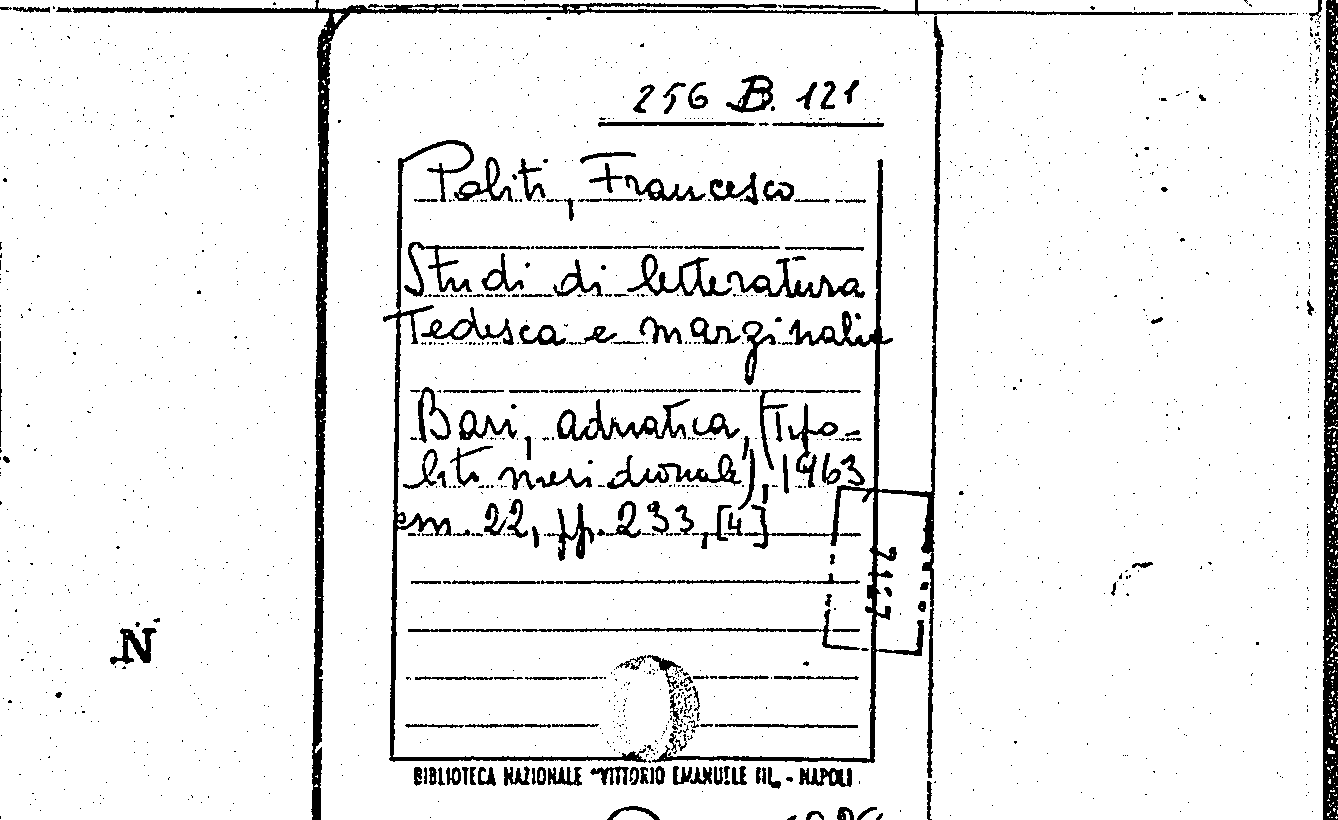 256 B. 121
Politi, Francesco
Studi di letteratura
Tedesca e marginalie
Bari, adriatica, (Tipo-
lito meridionale), 1963
cm. 22, pp. 233, [4]
N
BIBLIOTECA NAZIONALE "VITTORIO EMANUELE III„ - NAPOLI